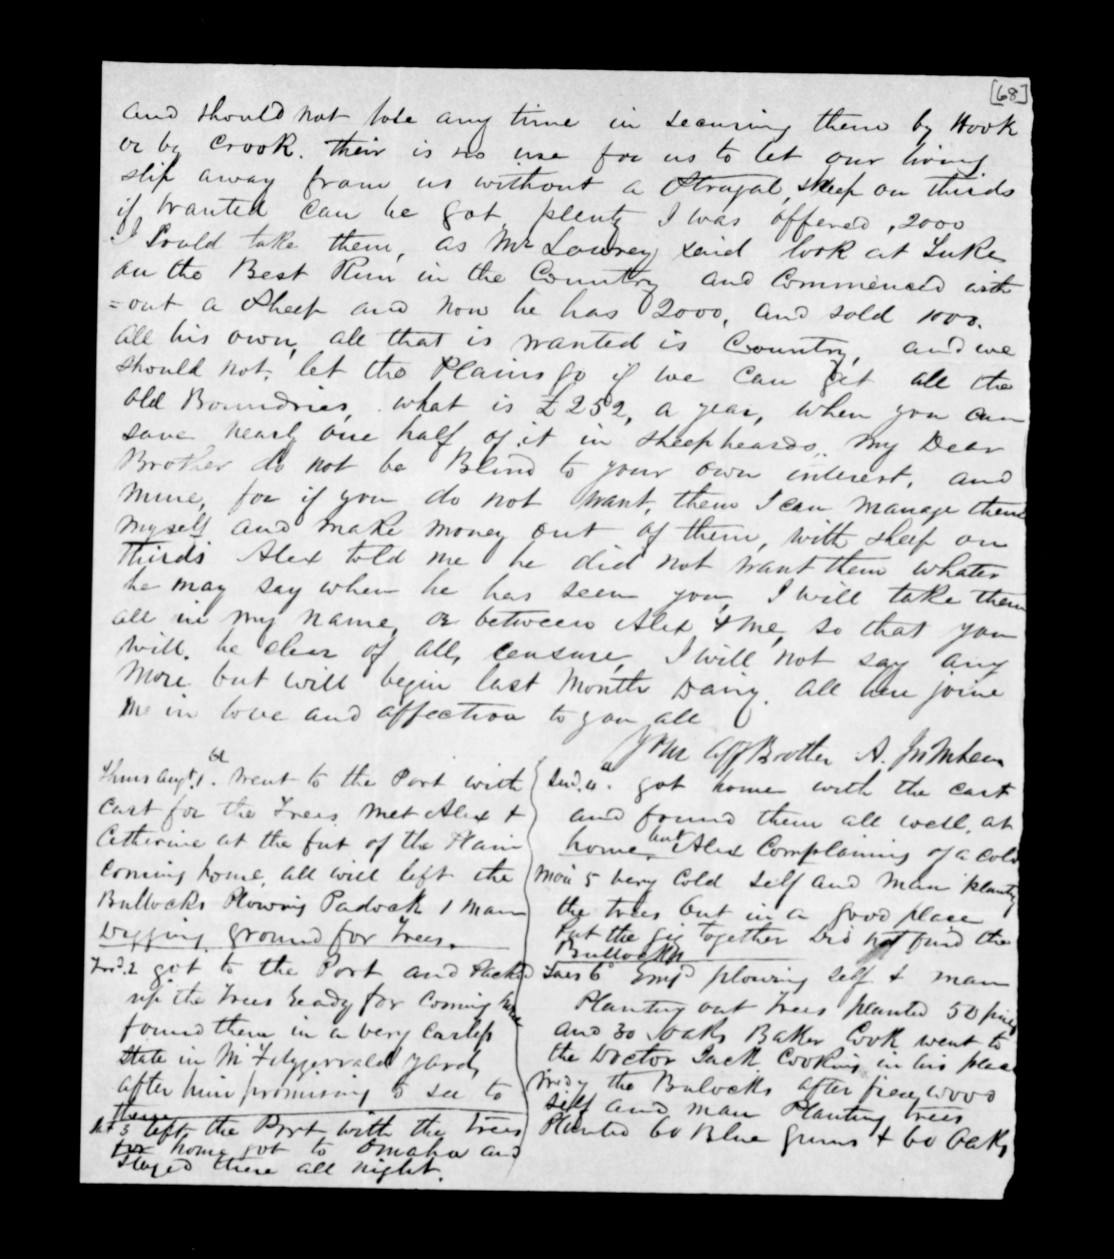 [68]
and should not lose any time in securing them by Hook
or by Crook. their is no use for us to let our living
slip away from us without a Strugal, sheep on thirds
if wanted can be got plenty I was offered, 2000
I Could take them, as Mr Lowrey said look at Luke
on the Best Run in the Country and Commenced with
=out a Sheep and now he has 2000, and sold 1000.
all his own, all that is wanted is Country, and we
should not. let the Plains go if we can get all the
old Boundries, what is £252, a year, when you can
save nearly one half of it in sheepheards, My Dear
Brother do not be Blind to your own interest, and
mine, for if you do not want, them I can manage them
myself and make money out of them, with sheep on
thirds Alex told me he did not want them whater
he may say when he has seen you, I will take them
all in my name, or between Alex & me, so that you
will. be clear of all, censure, I will not say any
More but will begin last Month Dairy. all here joine
me in love and affection to you all
Your aff Brother A. McLean
Thurs Augt. 1st. went to the Port with
cart for the Trees met Alex &
Catherine at the fut of the Plain
coming home, all well left the
Bullocks Plowing Padock 1 man
Digging ground for Trees.
Frid. 2 got to the Port and Packd
up the Trees ready for coming home
found them in a very carless
State in Mr Fitzgerrald yard,
after him promising to see to
them
Sat 3 left the Port with the Trees
for home got to Omahu and
stayed there all night.
Sud. 4th. got home with the cart
and found them all well. at
home, but Alex Complaining of a cold
Mon 5 very Cold self and man planting
the trees but in a good place
Put the gig together Did not find the
Bullocks
Tues 6 Empd plowing self & man
Planting out Trees planted 50 pines
and 30 oaks Baker Cook went to
the Doctor Jack Cooking in his place
Wedy the Bulocks after fire wood
self and man Planting trees
Planted 60 Blue gums & 60 Oaks